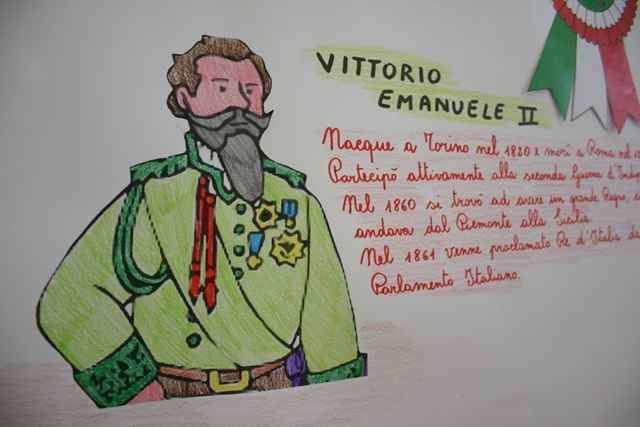 VITTORIO
EMANUELE II
Nacque a Torino nel 1820 e morì a Roma nel
Partecipò attivamente alla seconda Guerra d'
Nel 1860 si trovò ad avere un grande Regno,
andava dal Piemonte alla Sicilia.
Nel 1861 venne proclamato Re d'Italia
Parlamento Italiano.